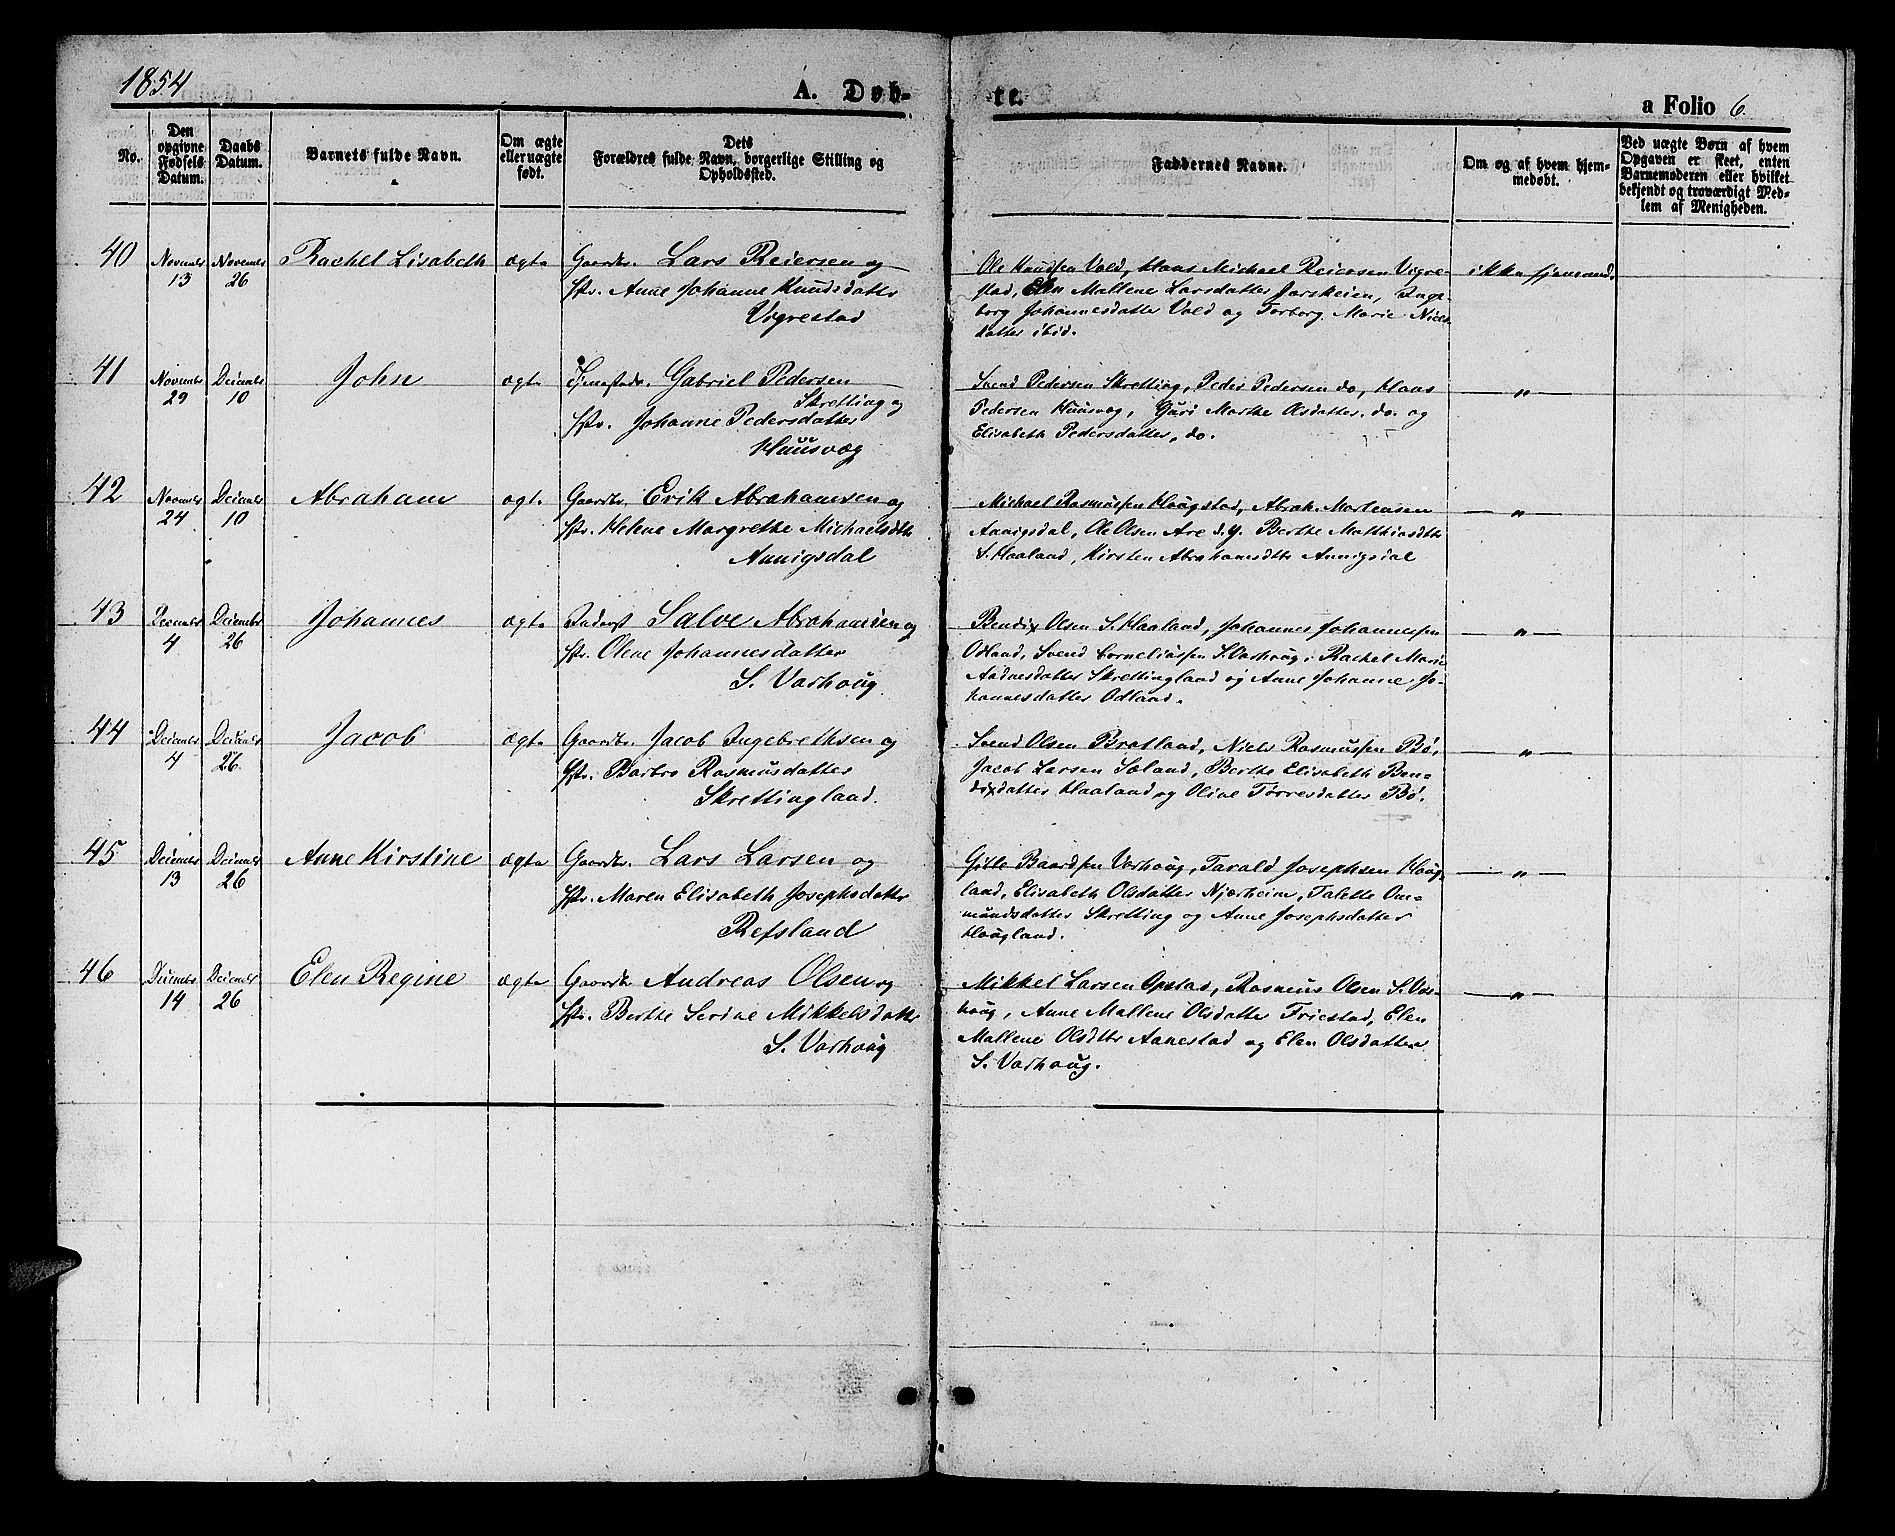 1854
A. Døb-
te.
a Folio 6.
No.
Den opgivne Fødsels Datum.
Daabs Datum.
Barnets fulde Navn.
Om ægte eller uægte født.
Dets Forældres fulde Navn, borgerlige Stilling og Opholdssted.
Faddernes Navne.
Om og af hvem hjemmedøbt.
Ved uægte Børn af hvem Opgaven er skeet, enten Barnemoderen eller hvilket bekjendt og troværdigt Medlem af Menigheden.
40 Novembr 13 Novembr 26 Rachel Lisabeth ægte Gaardbr. Lars Reiersen og
Hstr. Anne Johanne Knudsdatter
Vigrestad
Ole Knudsen Vold, Klaas Michael Reiersen Vigre-
stad, Elen Mallene Larsdatter, Inge-
borg Johannesdatter Vold og Torborg Marie Niels-
datter ibid.
ikke hjemmed.
41 Novembr 29 Decembr 10 John ægte Gabriel Pedersen
Skretting og
Hstr. Johanne Pedersdatter
Kuusvæg
Svend Pedersen Skretting, Peder Pedersen do, Klaas
Pedersen Kuusvæg, Guri Marthe Olsdatter do. og
Elisabeth Pedersdatter, do.
— „ —
42 Novembr 24 Decembr 10 Abraham ægt. Gaardbr. Erik Abrahamsen og
Hstr. Helene Margrethe Michaelsdtr
Aanigsdal
Michael Rasmussen Haugstad, Abrah. Mortensen
Aanigsdal, Ole Olsen Are d.y. Berthe Matthiasdtr
S. Haaland, Kirsten Abrahamsdtr Aanigsdal
— „ —
43 Decembr 4 Decembr 26 Johannes ægte Inderst Salve Abrahamsen og
Hstr. Olene Johannesdatter
S. Varhoug
Bendix Olsen S. Haaland, Johannes Johannessen
Odland, Svend Corneliussen S. Varhoug, Rachel Marie
Aadnesdatter Skrettingland og Anne Johanne Jo-
hannesdatter Odland.
— „ —
44 Decembr 4 Decembr 26. Jacob ægte Gaardbr. Jacob Ingebrethsen og
Hstr. Barbro Rasmusdatter
Skrettingland.
Svend Olsen Bratland, Niels Rasmussen Bø,
Jacob Larsen Soland, Berthe Elisabeth Ben-
dixdatter Haaland og Oline Tørresdatter Bø.
— „ —
45 Decembr 13 Decembr 26 Anne Kirstine ægte Gaardbr. Lars Larsen og
Hstr. Maren Elisabeth Josephsdatter
Refsland
Gitle Baardsen Varhoug, Tarald Josephsen Houg-
land, Elisabeth Olsdatter Njærheim, Talette Om-
mundsdatter Skretting og Anne Josephsdatter
Hougland.
— „ —
46 Decembr 14 Decembr 26 Elen Regine ægte Gaardbr. Andreas Olsen og
Hstr. Berthe Serine Mikkelsdatter
S. Varhoug
Mikkel Larsen Opstad, Rasmus Olsen S. Var-
houg, Anne Mallene Olsdatter Friestad, Elen
Mallene Olsdtr Aanestad og Elen Olsdatter
S. Varhoug.
— „ —